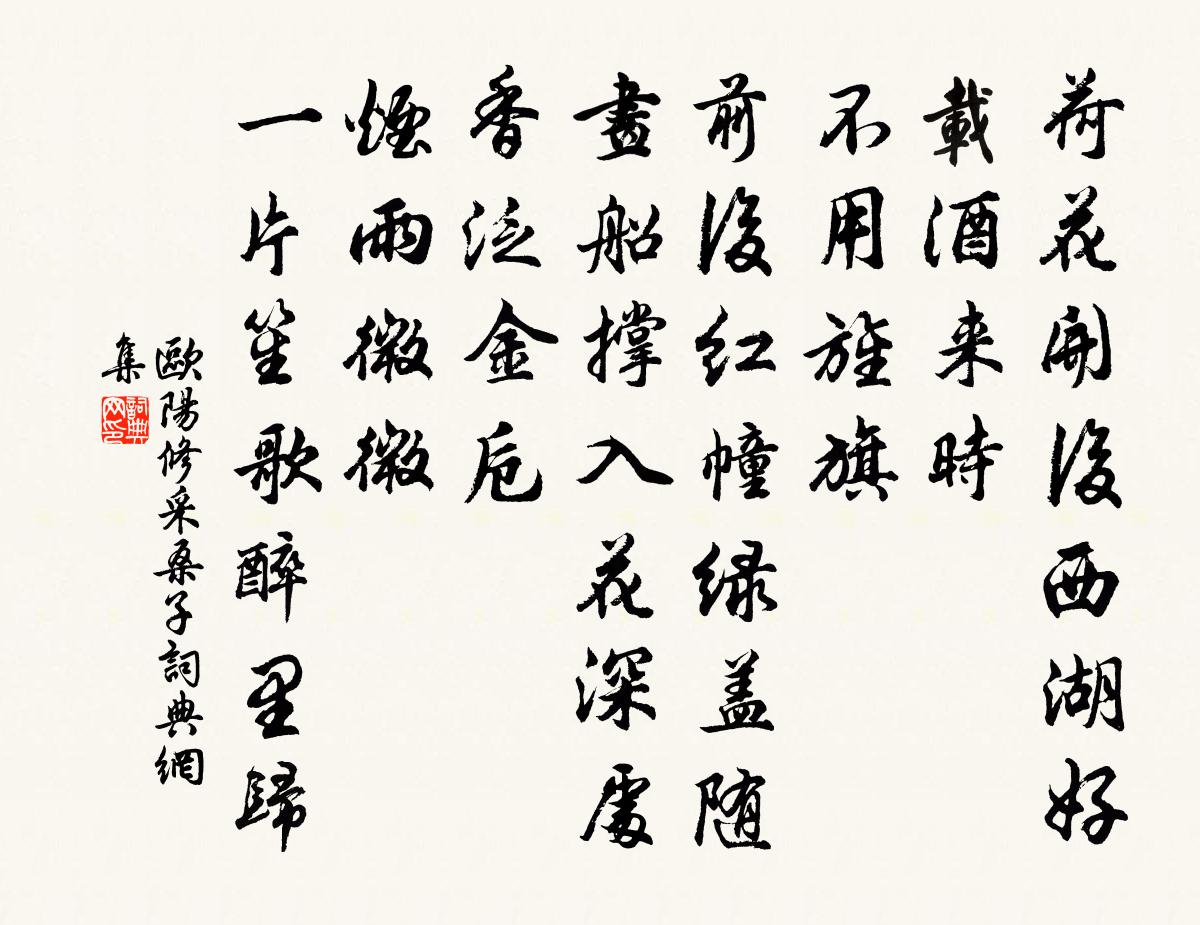 荷花開後西湖好
載酒来時
不用旌旗
前後红幢緑盖随
畫船撑入花深處
香泛金卮
煙雨微微
一片笙歌醉里歸
歐陽修采桑子詞典網
集
詞典
网印